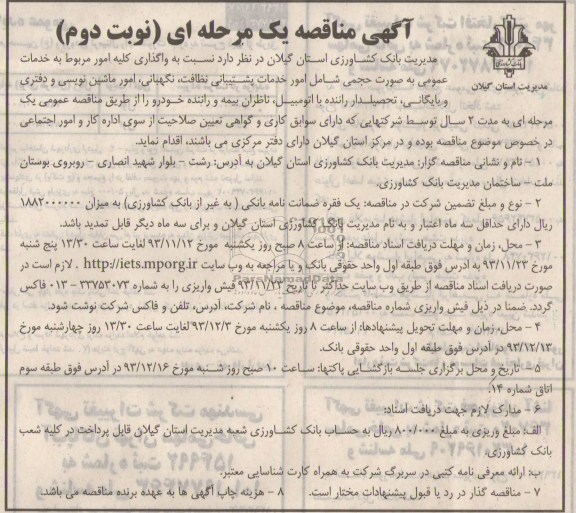 آگهی مناقصه یک مرحله ای (نوبت دوم)
مدیریت استان گیلان
مدیریت بانک کشاورزی استان گیلان در نظر دارد نسبت به واگذاری کلیه امور مربوط به خدمات
عمومی به صورت حجمی شامل امور خدمات پشتیبانی نظافت، نگهبانی، امور ماشین نویسی و دفتری
و بایگانی، تحصیلدار راننده یا اتومبیل، ناظران بیمه و راننده خودرو را از طریق مناقصه عمومی یک
مرحله ای به مدت ۲ سال توسط شرکتهایی که دارای سوابق کاری و گواهی تعیین صلاحیت از سوی اداره کار و امور اجتماعی
در خصوص موضوع مناقصه بوده و در مرکز استان گیلان دارای دفتر مرکزی می باشند، اقدام نماید.
۱ - نام و نشانی مناقصه گزار: مدیریت بانک کشاورزی استان گیلان به آدرس: رشت - بلوار شهید انصاری - روبروی بوستان
ملت - ساختمان مدیریت بانک کشاورزی.
۲ - نوع و مبلغ تضمین شرکت در مناقصه: یک فقره ضمانت نامه بانکی ( به غیر از بانک کشاورزی) به میزان ۱۸۸۲۰۰۰۰۰۰
ریال دارای حداقل سه ماه اعتبار و به نام مدیریت بانک کشاورزی استان گیلان و برای سه ماه دیگر قابل تمدید باشد.
۳ - محل، زمان و مهلت دریافت اسناد مناقصه: از ساعت ۸ صبح روز یکشنبه مورخ ۹۳/۱۱/۱۲ لغایت ساعت ۱۳/۳۰ پنج شنبه
مورخ ۹۳/۱۱/۲۳ به آدرس فوق طبقه اول واحد حقوقی بانک و یا مراجعه به وب سایت http://iets.mporg.ir . لازم است در
صورت دریافت اسناد مناقصه از طریق وب سایت حداکثر تا تاریخ ۹۳/۱۱/۲۳ فیش واریزی را به شماره ۳۳۷۵۳۰۷۳ - ۰۱۳ فاکس
گردد. ضمنا در ذیل فیش واریزی شماره مناقصه، موضوع مناقصه ، نام شرکت، آدرس، تلفن و فاکس شرکت نوشت شود.
۴ - محل، زمان و مهلت تحویل پیشنهادها: از ساعت ۸ روز یکشنبه مورخ ۹۳/۱۲/۳ لغایت ساعت ۱۳/۳۰ روز چهارشنبه مورخ
۹۳/۱۲/۱۳ در آدرس فوق طبقه اول واحد حقوقی بانک.
۵ - تاریخ و محل برگزاری جلسه بازگشایی پاکتها: ساعت ۱۰ صبح روز شنبه مورخ ۹۳/۱۲/۱۶ در آدرس فوق طبقه سوم
اتاق شماره ۱۴.
۶ - مدارک لازم جهت دریافت اسناد:
الف: مبلغ وریزی به مبلغ ۸۰۰/۰۰۰ ریال به حساب بانک کشاورزی شعبه مدیریت استان گیلان قابل پرداخت در کلیه شعب
بانک کشاورزی.
ب: ارائه معرفی نامه کتبی در سربرگ شرکت به همراه کارت شناسایی معتبر.
۷ - مناقصه گذار در رد یا قبول پیشنهادات مختار است. ۸ - هزینه چاپ آگهی ها به عهده برنده مناقصه می باشد.